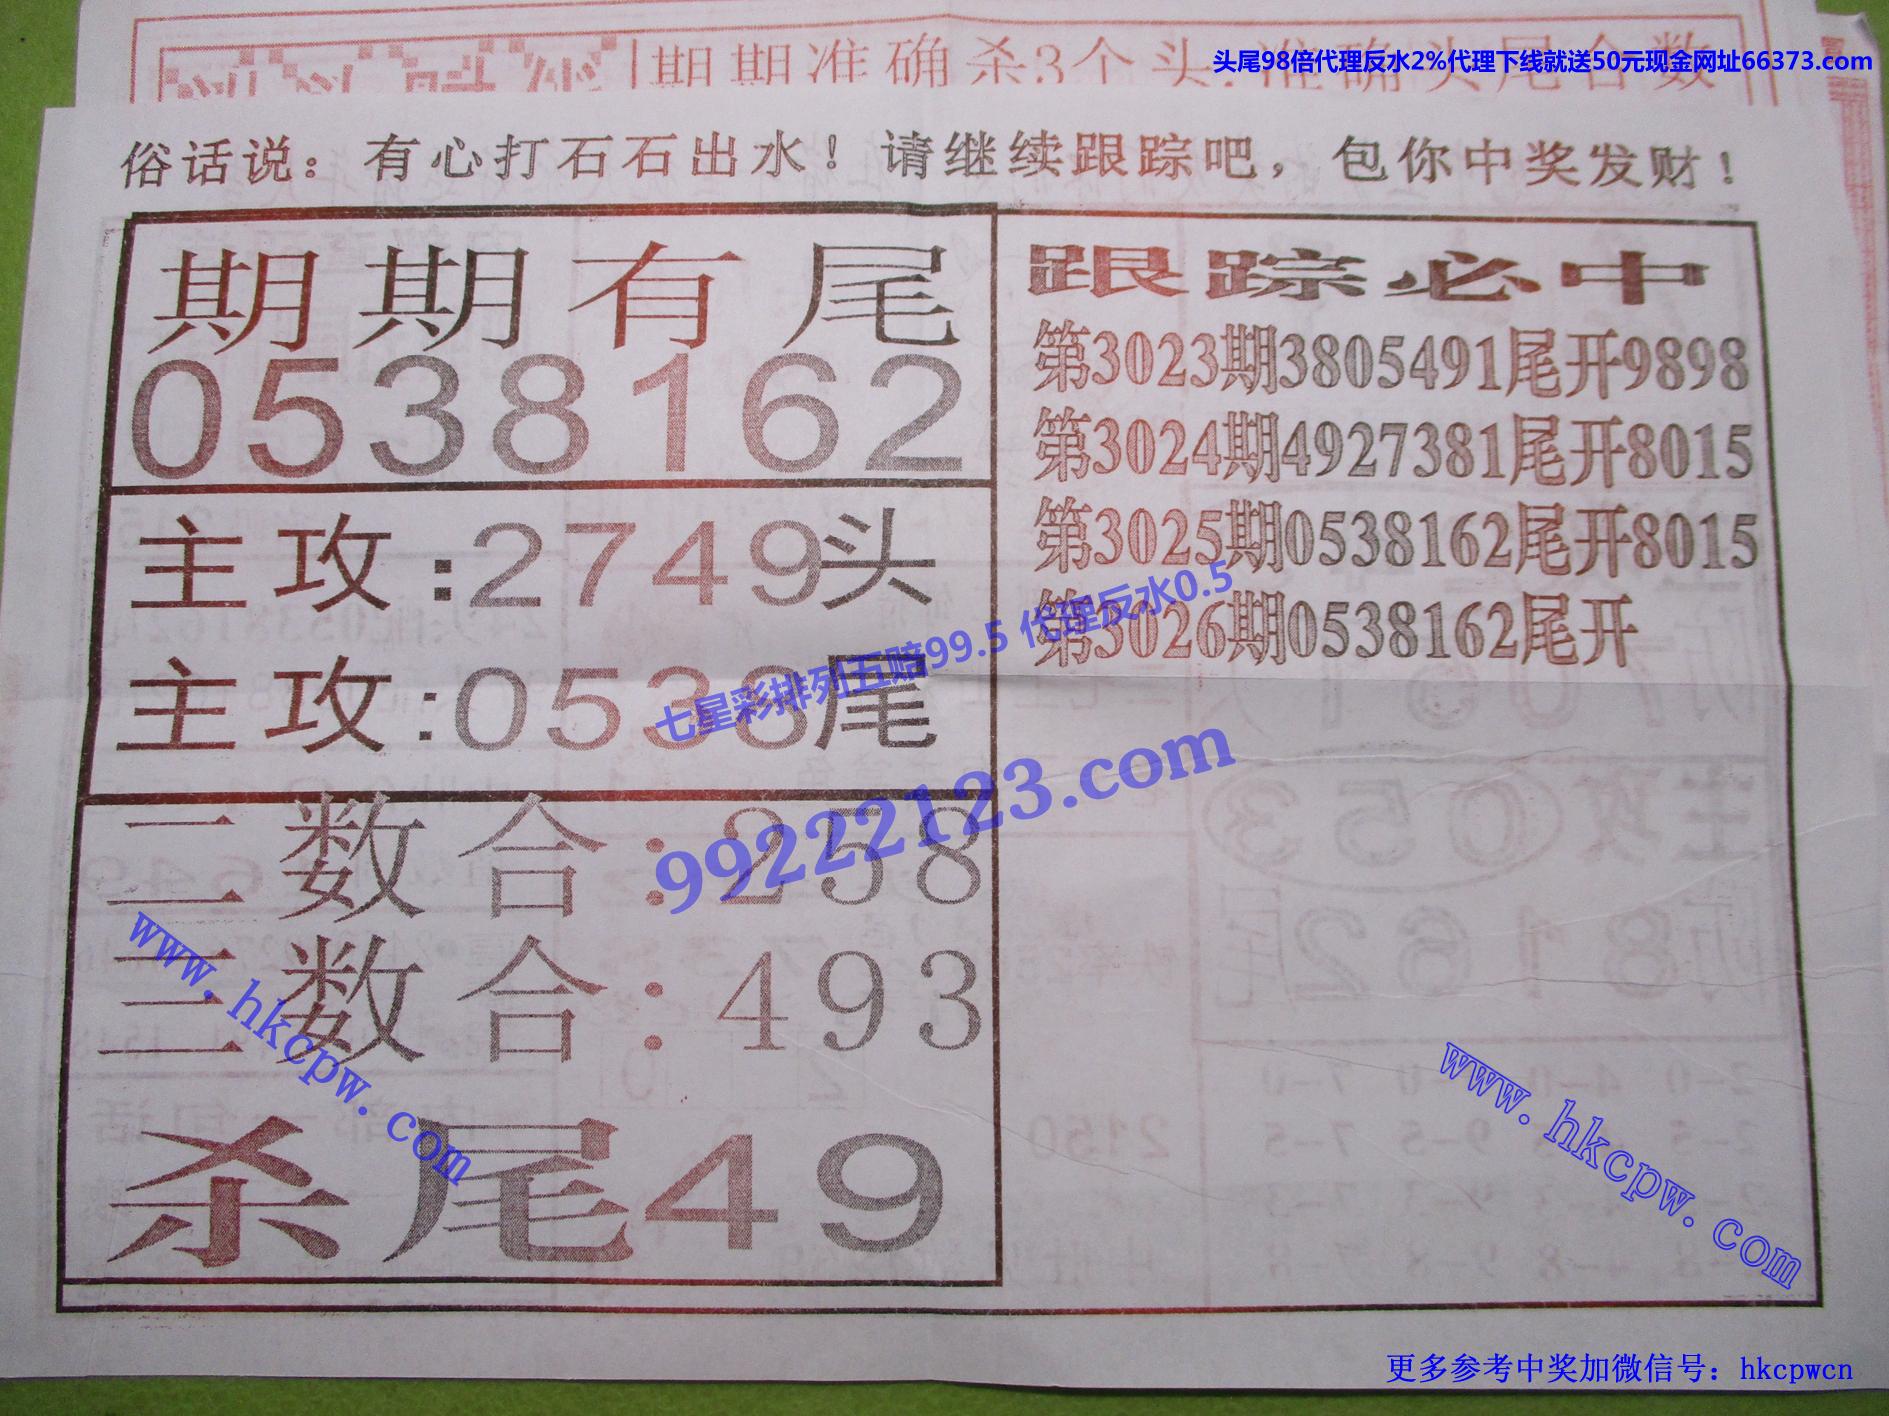 期期准确杀3个头.准确头尾合数
头尾98倍代理反水2%代理下线就送50元现金网址66373.com
俗话说：有心打石石出水！请继续跟踪吧，包你中奖发财！
期期有尾
0538162
主攻:2749头
主攻:0538尾
二数合:258
三数合:493
杀尾49
跟踪必中
第3023期3805491尾开9898
第3024期4927381尾开8015
第3025期0538162尾开8015
第3026期0538162尾开
七星彩排列五赔99.5 代理反水0.5
99222123.com
www.hkcpw.com
www.hkcpw.com
更多参考中奖加微信号：hkcpwcn